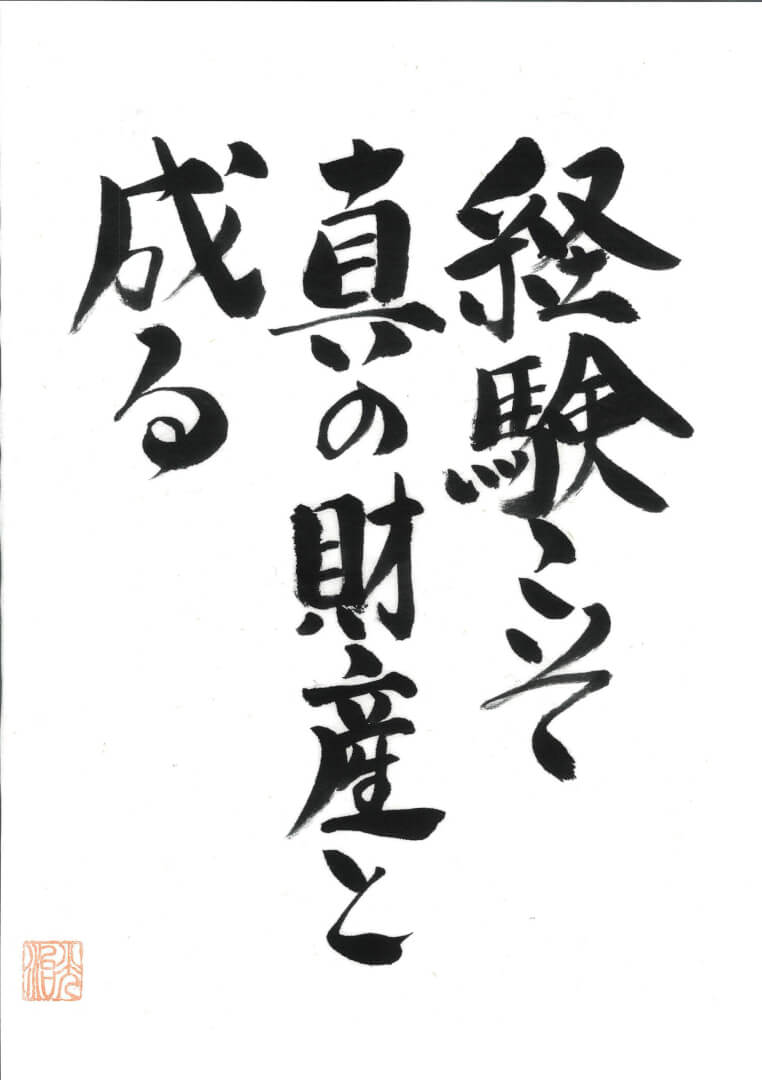 経験こそ
真の財産と
成る